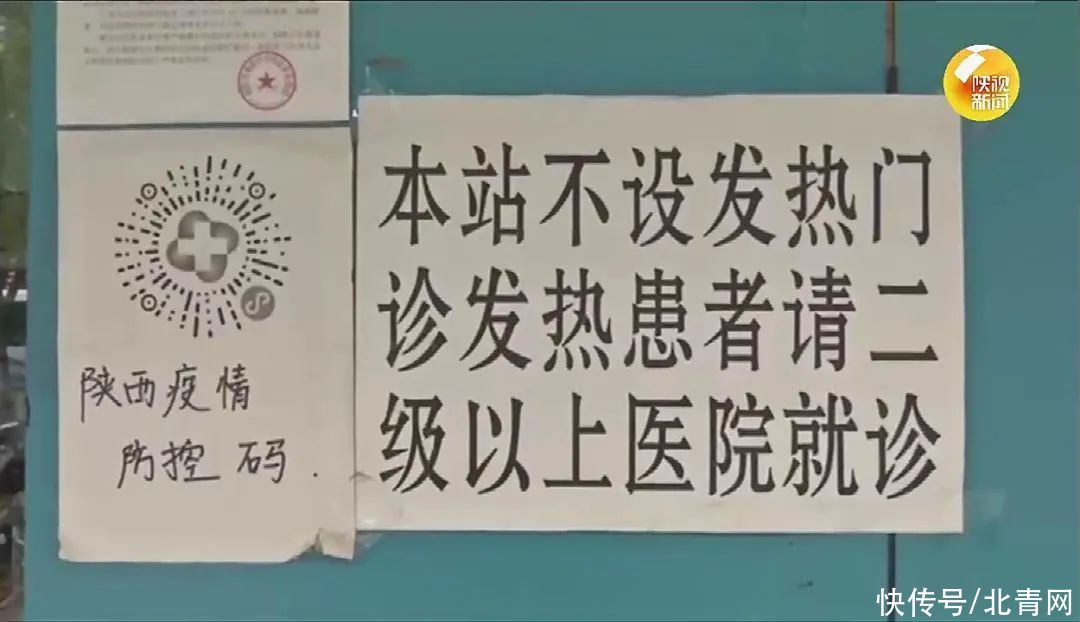 陕视
新闻
本站不设发热门
诊发热患者请二
级以上医院就诊
陕西疫情
防控码.
快传号/北青网